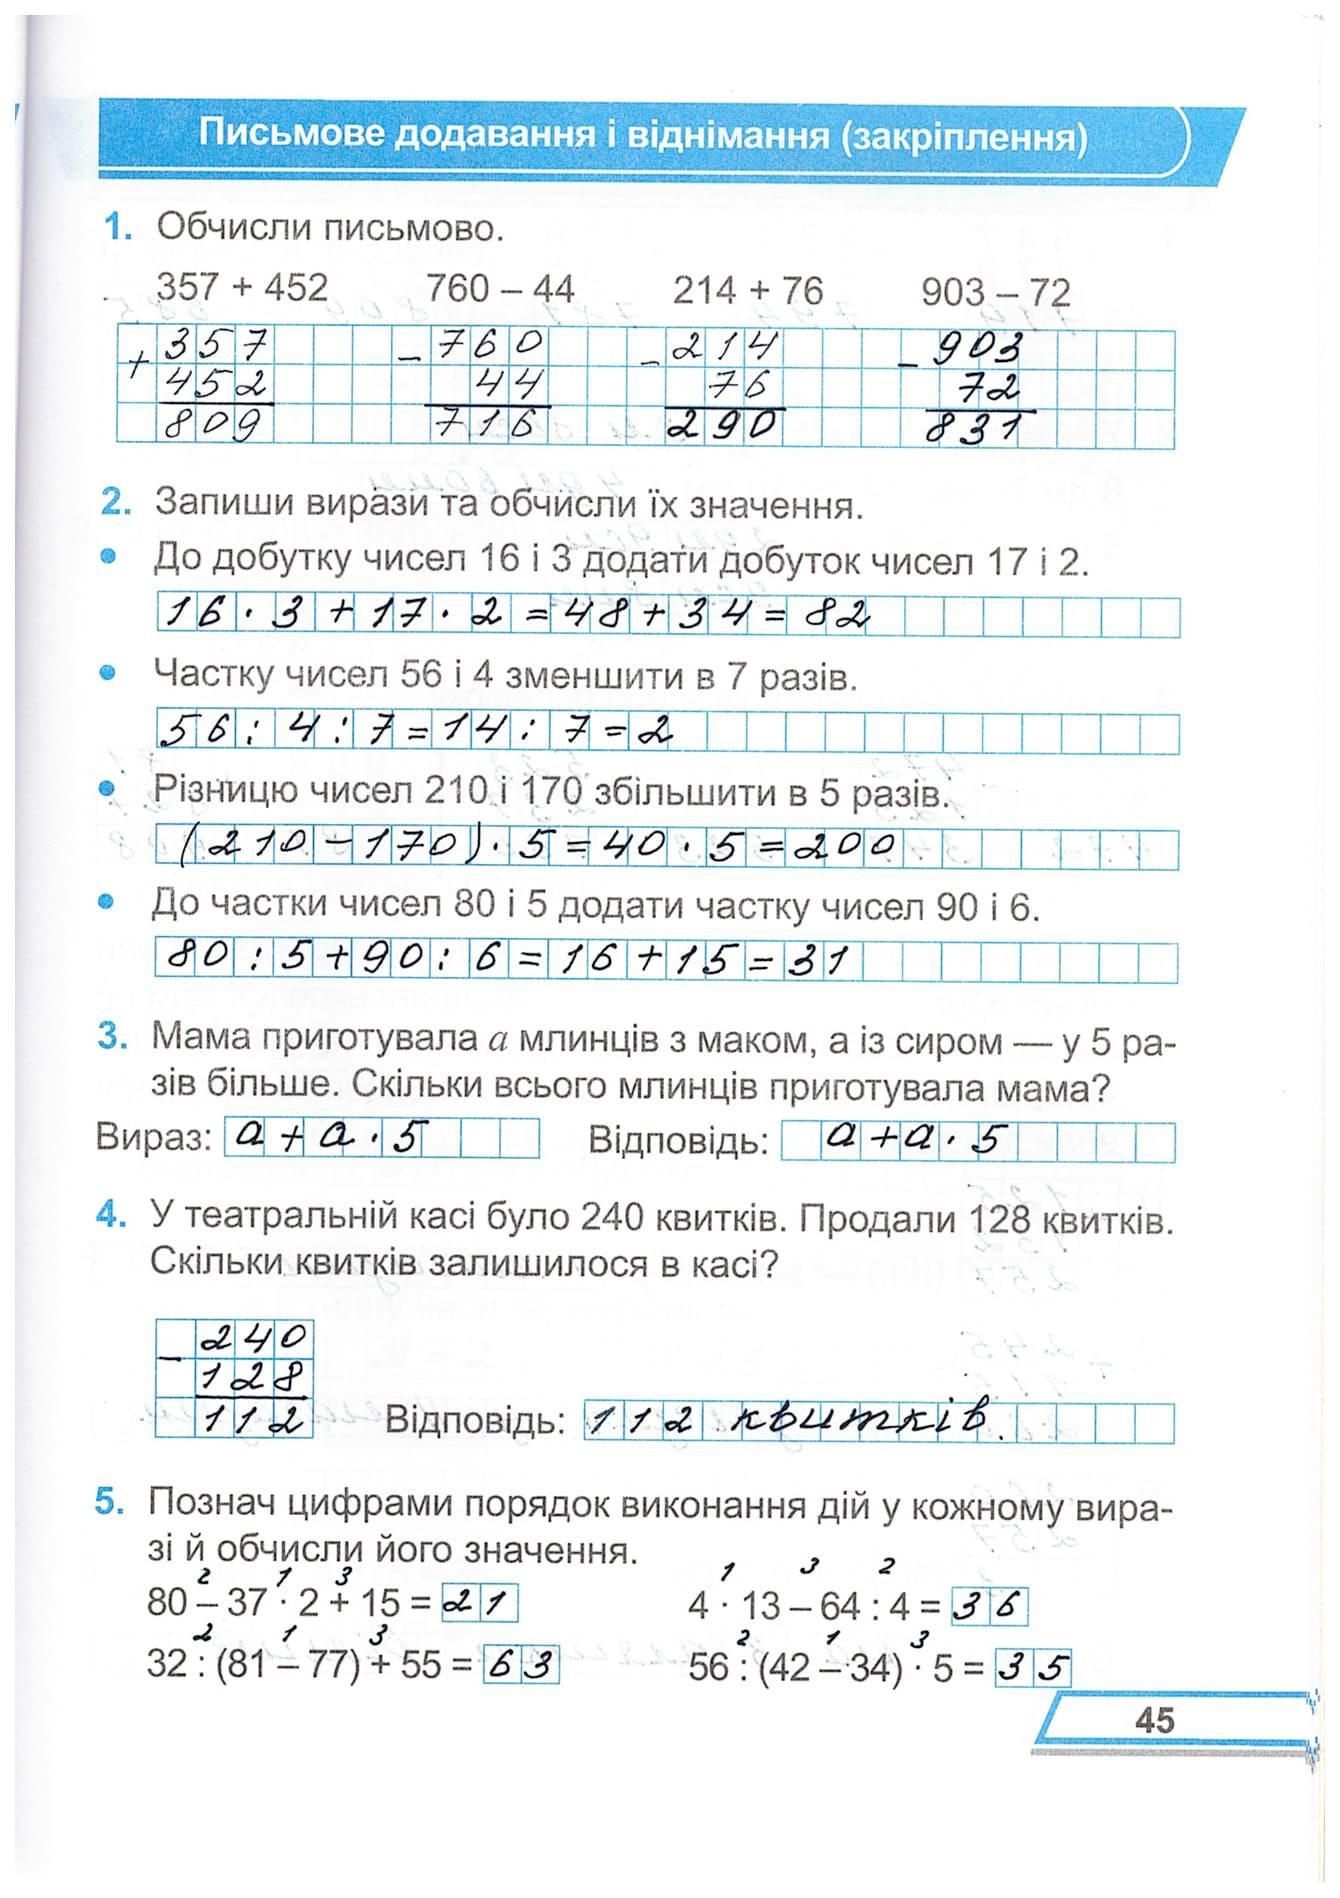 Письмове додавання і віднімання (закріплення)
1. Обчисли письмово.
357 + 452 760 – 44 214 + 76 903 – 72
+ 357 – 760 – 214 – 903
452 44 76 72
809 716 290 831
2. Запиши вирази та обчисли їх значення.
• До добутку чисел 16 і 3 додати добуток чисел 17 і 2.
16 · 3 + 17 · 2 = 48 + 34 = 82
• Частку чисел 56 і 4 зменшити в 7 разів.
56 : 4 : 7 = 14 : 7 = 2
• Різницю чисел 210 і 170 збільшити в 5 разів.
(210 – 170) · 5 = 40 · 5 = 200
• До частки чисел 80 і 5 додати частку чисел 90 і 6.
80 : 5 + 90 : 6 = 16 + 15 = 31
3. Мама приготувала а млинців з маком, а із сиром — у 5 ра-
зів більше. Скільки всього млинців приготувала мама?
Вираз: а + а · 5 Відповідь: а + а · 5
4. У театральній касі було 240 квитків. Продали 128 квитків.
Скільки квитків залишилося в касі?
– 240
128
112 Відповідь: 112 квитків.
5. Познач цифрами порядок виконання дій у кожному вира-
зі й обчисли його значення.
2 1 3 1 3 2
80 – 37 · 2 + 15 = 21 4 · 13 – 64 : 4 = 36
2 1 3 2 1 3
32 : (81 – 77) + 55 = 63 56 : (42 – 34) · 5 = 35
45